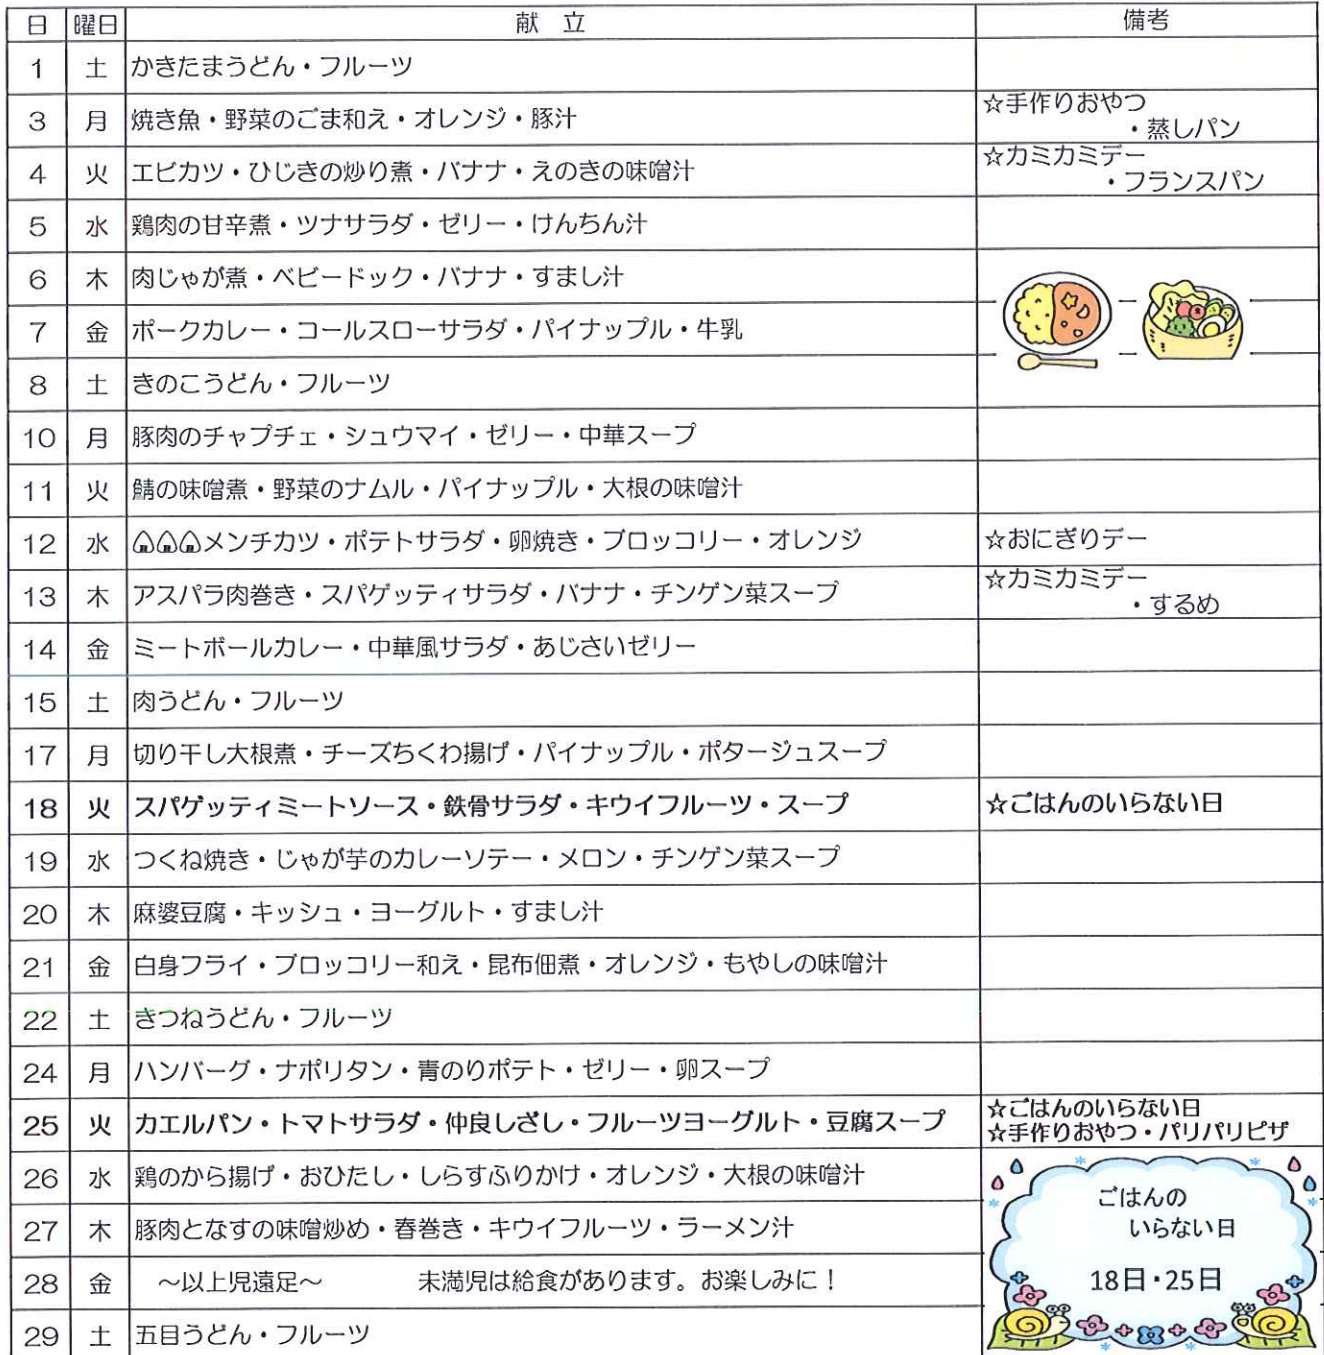 日 曜日 献 立 備考
1 土 かきたまうどん・フルーツ
3 月 焼き魚・野菜のごま和え・オレンジ・豚汁 ☆手作りおやつ
・蒸しパン
4 火 エビカツ・ひじきの炒り煮・バナナ・えのきの味噌汁 ☆カミカミデー
・フランスパン
5 水 鶏肉の甘辛煮・ツナサラダ・ゼリー・けんちん汁
6 木 肉じゃが煮・ベビードック・バナナ・すまし汁
7 金 ポークカレー・コールスローサラダ・パイナップル・牛乳
8 土 きのこうどん・フルーツ
10 月 豚肉のチャプチェ・シュウマイ・ゼリー・中華スープ
11 火 鯖の味噌煮・野菜のナムル・パイナップル・大根の味噌汁
12 水 🍙🍙🍙メンチカツ・ポテトサラダ・卵焼き・ブロッコリー・オレンジ ☆おにぎりデー
13 木 アスパラ肉巻き・スパゲッティサラダ・バナナ・チンゲン菜スープ ☆カミカミデー
・するめ
14 金 ミートボールカレー・中華風サラダ・あじさいゼリー
15 土 肉うどん・フルーツ
17 月 切り干し大根煮・チーズちくわ揚げ・パイナップル・ポタージュスープ
18 火 スパゲッティミートソース・鉄骨サラダ・キウイフルーツ・スープ ☆ごはんのいらない日
19 水 つくね焼き・じゃが芋のカレーソテー・メロン・チンゲン菜スープ
20 木 麻婆豆腐・キッシュ・ヨーグルト・すまし汁
21 金 白身フライ・ブロッコリー和え・昆布佃煮・オレンジ・もやしの味噌汁
22 土 きつねうどん・フルーツ
24 月 ハンバーグ・ナポリタン・青のりポテト・ゼリー・卵スープ
25 火 カエルパン・トマトサラダ・仲良しざし・フルーツヨーグルト・豆腐スープ ☆ごはんのいらない日
☆手作りおやつ・パリパリピザ
26 水 鶏のから揚げ・おひたし・しらすふりかけ・オレンジ・大根の味噌汁
27 木 豚肉となすの味噌炒め・春巻き・キウイフルーツ・ラーメン汁
28 金 ～以上児遠足～ 未満児は給食があります。お楽しみに！
29 土 五目うどん・フルーツ
ごはんの
いらない日
18日・25日